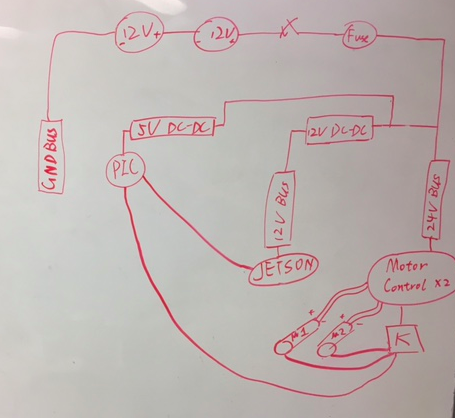 - 12V +
- 12V +
Fuse
GND BUS
5V DC-DC
12V DC-DC
PIC
12V BUS
24V BUS
JETSON
Motor
Control x2
+ -
+ -
M1
M2
K